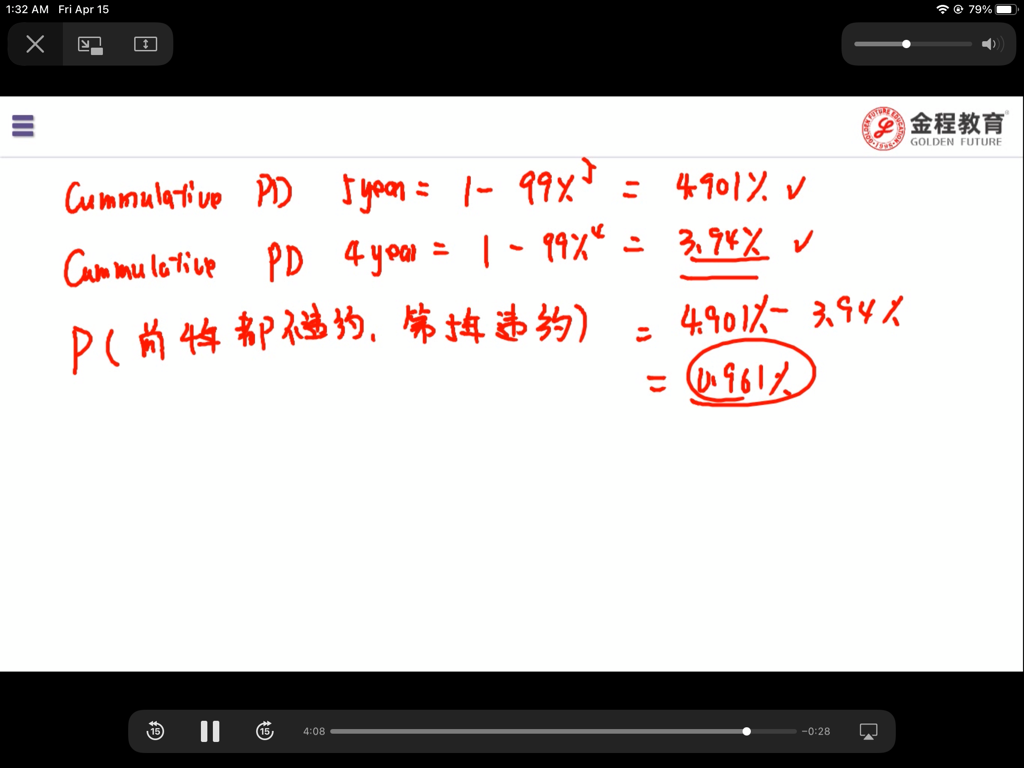 1:32 AM Fri Apr 15 79%
金程教育
GOLDEN FUTURE
Cummulative PD 5year = 1 - 99%⁵ = 4.901% ✓
Cummulative PD 4year = 1 - 99%⁴ = 3.94% ✓
P(前4年都不违约, 第5年违约) = 4.901% - 3.94%
= 0.961%
15 15 4:08 -0:28